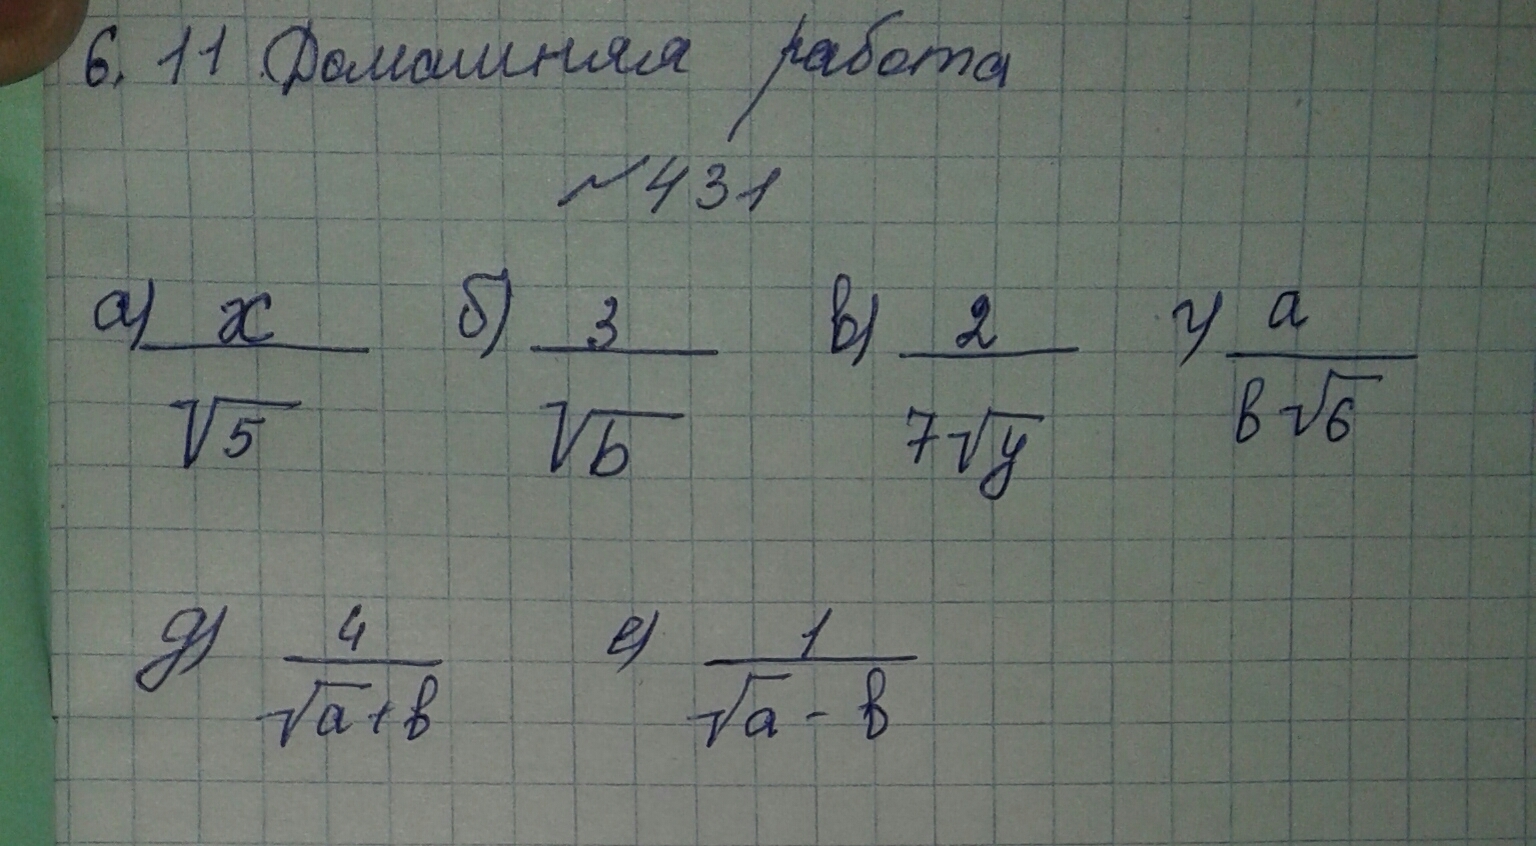 6. 11 Домашняя работа
№431
а) x/√5 б) 3/√b в) 2/7√y г) a/b√6
д) 4/√a+b е) 1/√a-b